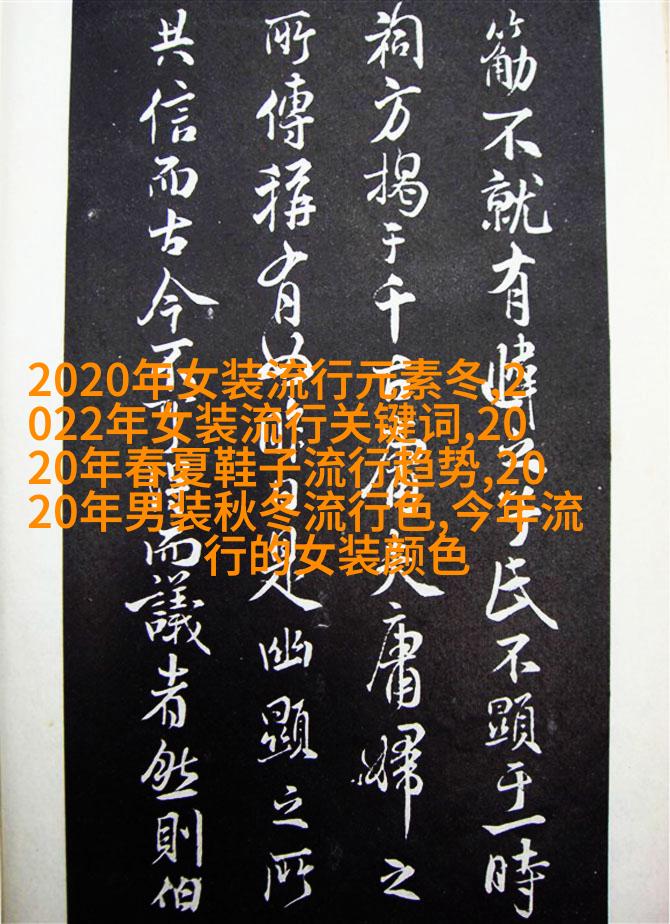 不就有氏不顯于一時
祠方揭于千古夫庸婦之
所傳稱有見幽顯之所
共信而古今不可得而議者然則伯
2020年女装流行元素冬,2
022年女装流行关键词,20
20年春夏鞋子流行趋势,20
20年男装秋冬流行色,今年流
行的女装颜色